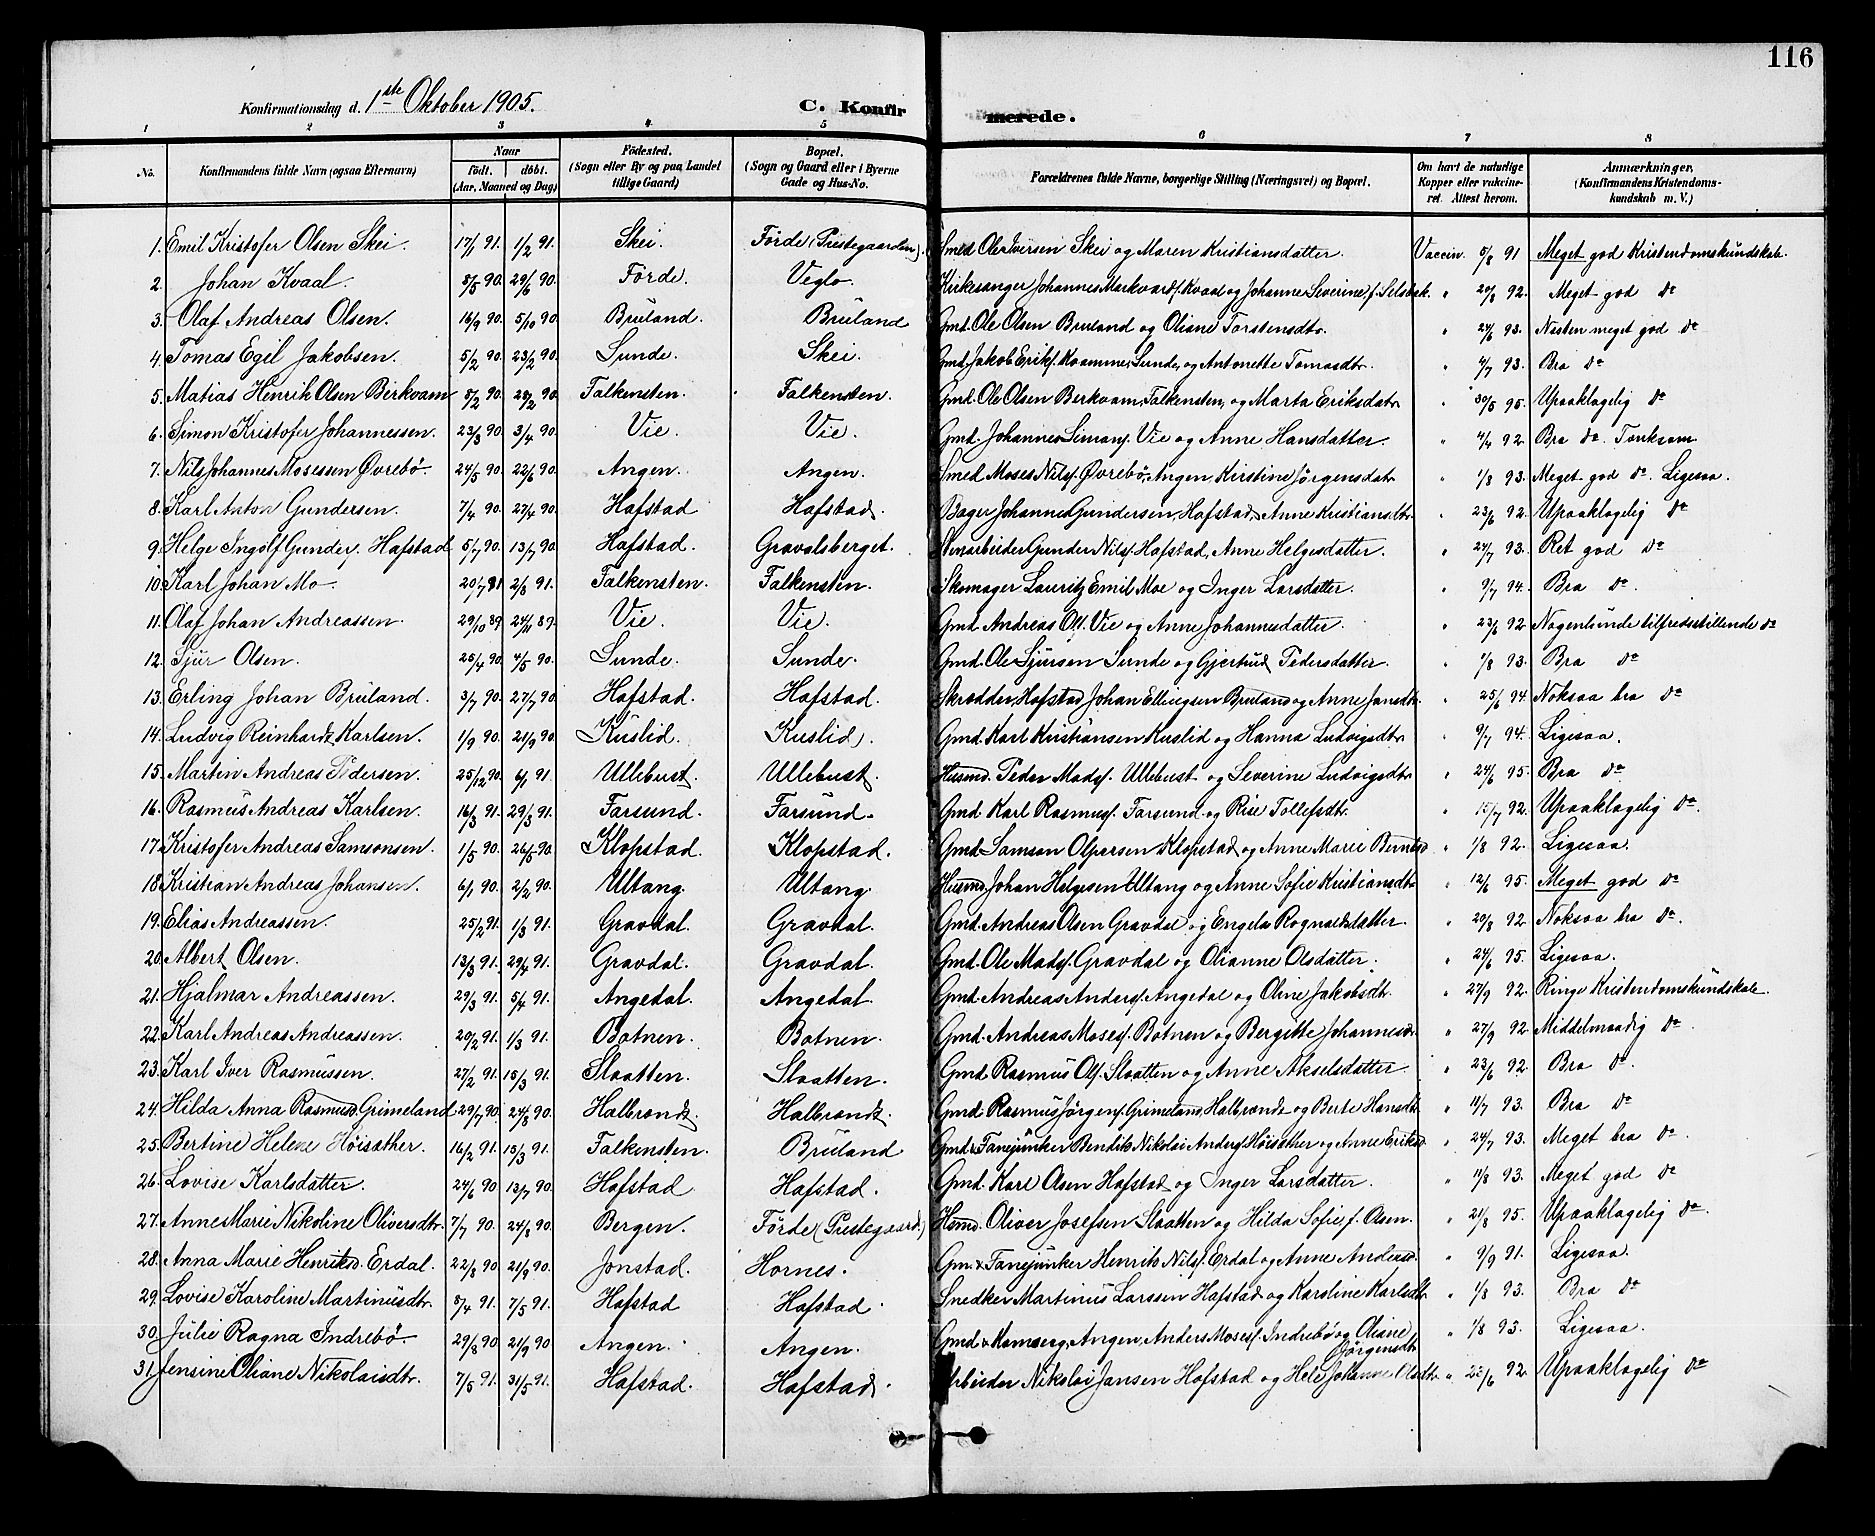 116
Konfirmationsdag d. 1ste Oktober 1905. C. Konfirmerede.
1 2 3 4 5 6 7 8
No. Konfirmandens fulde Navn (ogsaa Efternavn) Naar födt. döbt. (Aar, Maaned og Dag) Födested. (Sogn eller By og paa Landet tillige Gaard) Bopæl. (Sogn og Gaard eller i Byerne Gade og Hus-No. Forældrenes fulde Navne, borgerlige Stilling (Næringsvei) og Bopæl. Om havt de naturlige Kopper eller vakcineret. Attest herom. Anmærkninger, (Konfirmandens Kristendomskundskab m. V.)
1. Emil Kristofer Olsen Skei. 17/1 91. 1/2 91. Skei. Förde (Prestegaarden). Smed Ole Iversen Skei og Maren Kristiansdatter. Vaccin. 5/8 91 Meget god Kristendomskundskab.
2. Johan Kvaal. 8/5 90. 29/6 90. Förde. Veglo. Kirkesanger Johannes Markvard s. Kvaal og Johanne Severine f. Selsbak. " 20/8 92. Meget god do
3. Olaf Andreas Olsen. 16/9 90. 5/10 90. Bruland. Bruland Gmd. Ole Olsen Bruland og Oliane Torstensdtr. " 24/6 93. Næsten meget god do
4. Tomas Egil Jakobsen. 5/2 90. 23/2 90. Sunde. Skei. Gmd. Jakob Eriks. Kvamme, Sunde, og Antonette Tomasdtr. " 4/7 93. Bra do
5. Matias Henrik Olsen Berkvam 8/2 90. 28/2 90. Falkensten. Falkensten. Gmd. Ole Olsen Berkvam, Falkensten, og Marta Eriksdatr " 30/5 95. Upaaklagelig do
6. Simon Kristofer Johannessen. 23/3 90. 3/4 90. Vie. Vie. Gmd. Johannes Simons. Vie og Anne Hansdatter. " 4/4 92. Bra do.
7. Nils Johannes Mosessen Øvrebö. 24/5 90. 22/6 90. Angen. Angen. Smed Moses Nils. Øvrebö, Angen, Kristine Jörgensdatr " 1/8 93. Meget god do. Ligesaa.
8. Karl Anton Gundersen. 7/4 90. 27/4 90. Hafstad Hafstad. Bager Johannes Gundersen, Hafstad, Anne Kristiansdtr. " 23/6 92. Upaaklagelig do
9. Helge Ingolf Gunders. Hafstad 5/7 90. 13/7 90. Hafstad. Gravalsberget. Gunder Nils. Hafstad, Anne Helgesdatter. " 24/7 93. Ret god do
10. Karl Johan Mo. 20/7 91 2/8 91. Falkensten. Falkensten. Skomager Lauritz Emil Moe og Inger Larsdatter. " 9/7 94. Bra do.
11. Olaf Johan Andreassen. 29/10 89. 24/11 89. Vie. Vie. Gmd. Andreas Ols. Vie og Anne Johannesdatter. " 23/6 92. Nogenlunde tilfredsstillende do
12. Sjur Olsen. 25/4 90. 4/5 90. Sunde. Sunde. Gmd. Ole Sjursen Sunde og Gjertrud Pedersdatter. " 1/8 93. Bra do
13. Erling Johan Bruland. 3/7 90. 27/7 90. Hafstad. Hafstad. Skrædder, Hafstad Johan Ellingsen Bruland og Anne Jansdtr. " 25/6 94. Noksaa bra do
14. Ludvig Reinhardt Karlsen. 1/9 90. 21/9 90. Kuslid. Kuslid. Gmd. Karl Kristiansen Kuslid og Hanna Ludvigsdtr " 9/7 94. Ligesaa.
15. Martin Andreas Pedersen. 25/12 90. 6/1 91. Ullebust. Ullebust. Husmd. Peder Mads. Ullebust og Severine Ludvigsdtr " 24/6 95. Bra do
16. Rasmus Andreas Karlsen. 16/3 91. 29/3 91. Farsund. Farsund. Gmd. Karl Rasmus. Farsund og Rise Tollefsdtr. " 15/7 92. Upaaklagelig do.
17. Kristofer Andreas Samsonsen. 1/5 90. 26/5 90. Klopstad. Klopstad. Gmd. Samson Olpersen Klopstad og Anne Marie Berntsd " 1/8 92. Ligesaa.
18. Kristian Andreas Johansen. 6/1 90. 2/2 90. Ultang. Ultang. Husmd. Johan Helgesen Ultang og Anne Sofie Kristiansdtr " 12/6 95. Meget god do
19. Elias Andreassen. 25/2 91. 1/3 91. Gravdal. Gravdal. Gmd. Andreas Olsen Gravdal og Engela Rognaldsdatter. " 20/8 92. Noksaa bra do.
20. Albert Olsen. 13/3 91. 29/4 91. Gravdal. Gravdal. Gmd. Ole Mads. Gravdal og Olianne Olsdatter. " 24/6 95. Ligesaa.
21. Hjalmar Andreassen. 29/3 91. 5/4 91. Angedal. Angedal. Gmd. Andreas Anders. Angedal og Oline Jakobsdt. " 27/9 92. Ringe Kristendomskundskab.
22. Karl Andreas Andreassen. 20/2 91. 1/3 91. Botnen. Botnen. Gmd. Andreas Moses. Botnen og Bergitte Johannesd. " 27/9 92. Middelmaadig do.
23. Karl Iver Rasmussen. 27/2 91. 15/3 91. Slaatten. Slaatten. Gmd. Rasmus Ols. Slaatten og Anne Akselsdatter " 23/6 92. Bra do.
24. Hilda Anna Rasmusd. Grimeland. 29/7 90. 24/8 90. Halbrendt. Halbrendt. Gmd. Rasmus Jörgens. Grimeland, Halbrendt og Berte Hansdt. " 11/7 93. Bra do
25. Bertine Helene Höisæther. 16/2 91. 15/3 91. Falkensten. Bruland Gmd. & Fanejunker Bendik Nikolai Anders. Höisæther og Anne Eriksd. " 24/7 93. Meget bra do.
26. Lovise Karlsdatter. 24/6 90 13/7 90. Hafstad Hafstad. Gmd. Karl Olsen Hafstad og Inger Larsdatter. " 11/8 93. Meget god do
27. Anne Marie Nikoline Oliversdtr. 7/7 90. 24/8 90. Bergen. Förde (Prestegaard.) Hsmd. Oliver Josefsen Slaatten og Hilda Sofie, f. Olsen. " 21/8 95. Upaaklagelig do.
28. Anna Marie Henriksd. Erdal. 22/8 90 21/9 90. Jonstad. Hornes. Gm. & Fanejunker Henrik Nils. Erdal og Anne Andersd. " 9/9 91. Ligesaa.
29. Lovise Karoline Martinusdtr. 8/4 91. 7/5 91. Hafstad Hafstad. Snedker Martinus Larssen Hafstad og Karoline Karlsdtr " 1/8 93. Bra do
30. Julie Ragna Indrebö. 29/8 90 21/9 90 Angen. Angen. Gmd. & Angen, Anders Moses. Indrebö og Oliane Jörgensdtr. " 1/8 93. Ligesaa.
31. Jensine Oliane Nikolaisdtr. 7/5 91. 31/5 91. Hafstad. Hafstad. Arbeider Nikolai Jansen Hafstad og Hele Johanne Olsdtr " 25/6 92. Upaaklagelig do